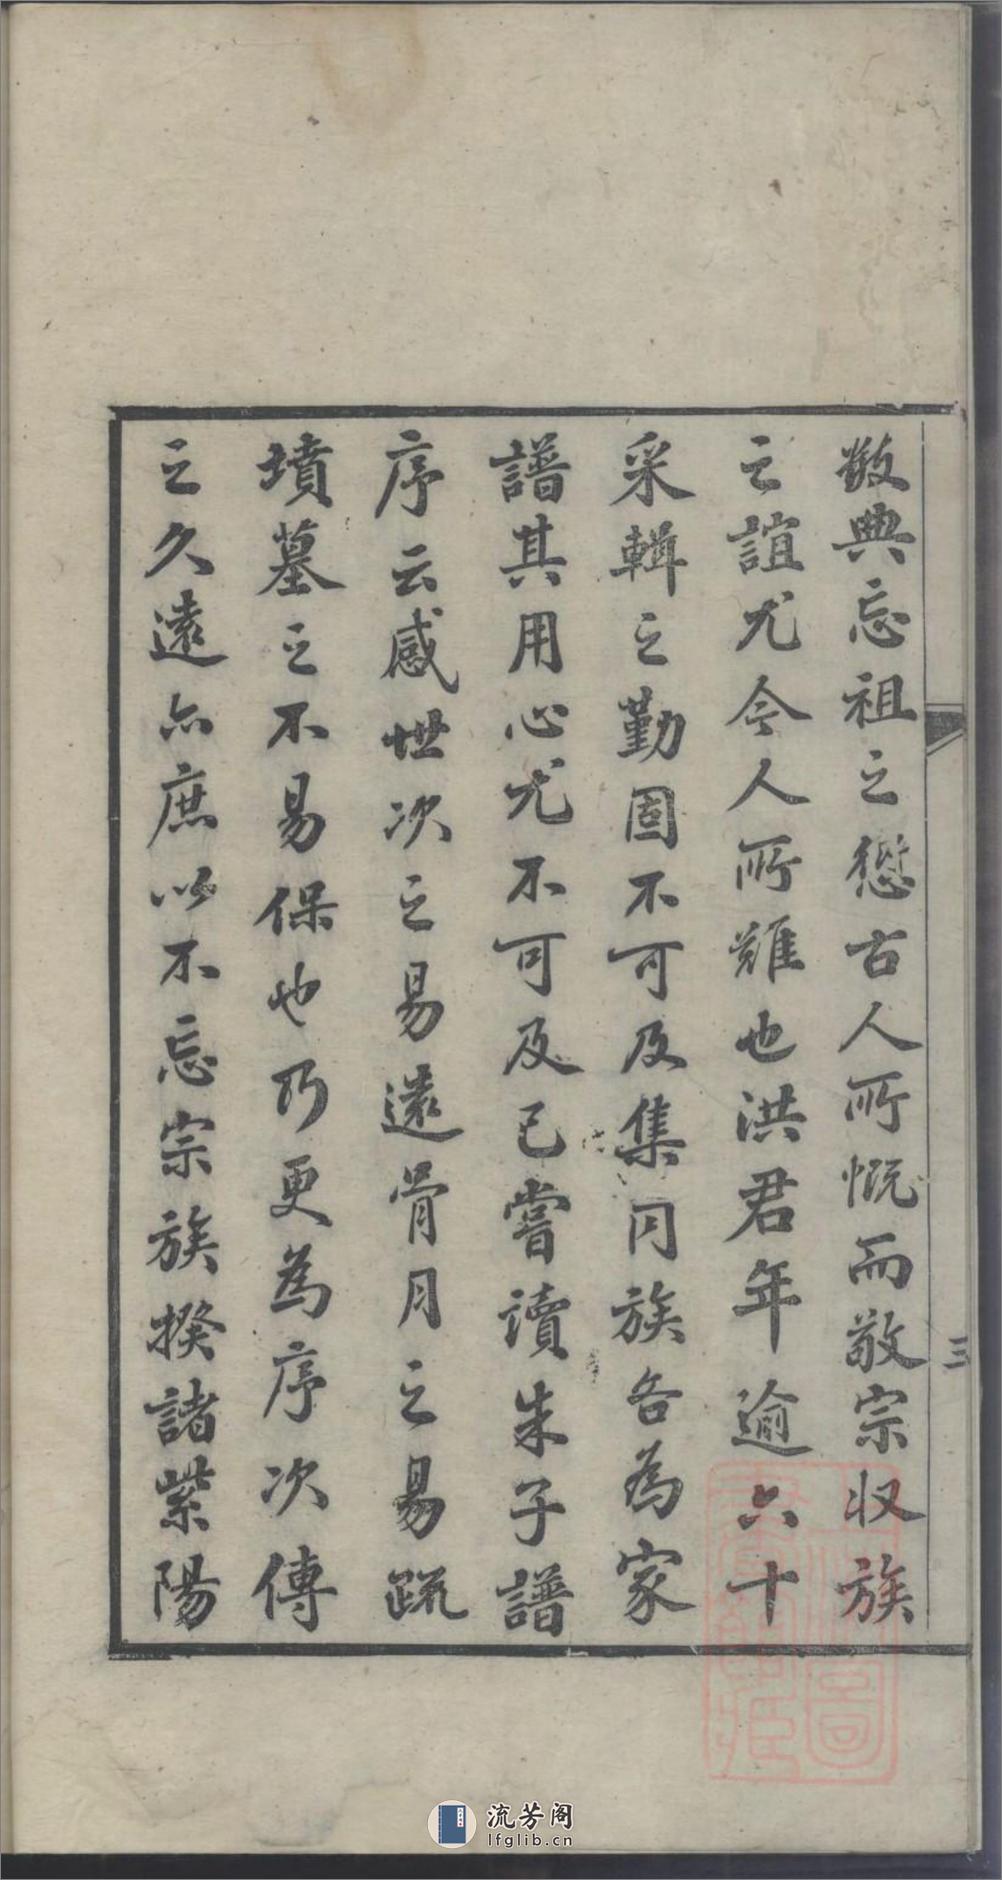 數典忘祖之愆古人所慨而敬宗收族
之誼尤今人所難也洪君年逾六十
采輯之勤固不可及集同族各為家
譜其用心尤不可及已嘗讀朱子譜
序云感世次之易遠骨月之易疏
墳墓之不易保也乃更為序次傳
之久遠亦庶以不忘宗族揆諸紫陽
三
流芳阁
lfglib.cn